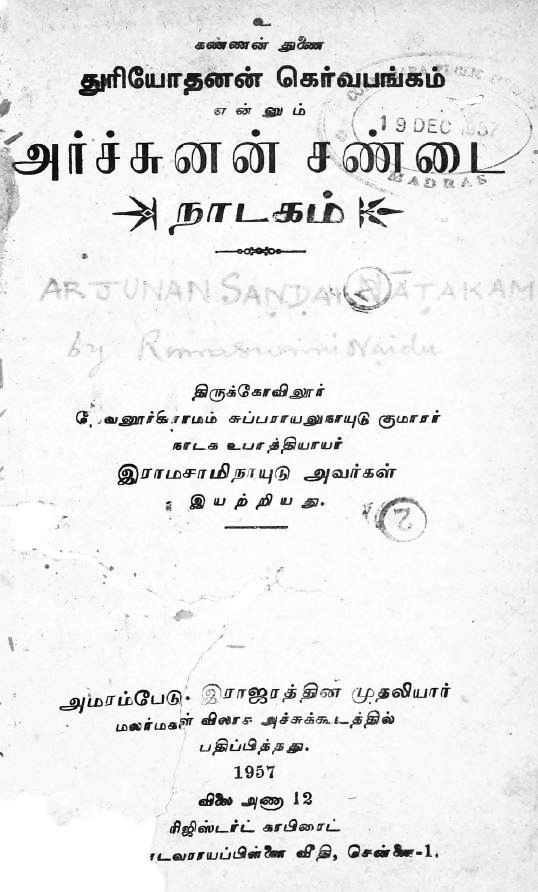 உ
கண்ணன் துணை
துரியோதனன் கெர்வபங்கம்
என்னும்
அர்ச்சுனன் சண்டை
நாடகம்
19 DEC 1957
MADRAS
ARJUNAN SANDAI NATAKAM
by Ramaswami Naidu
திருக்கோவிலூர்
தேவனூர்கிராமம் சுப்பராயலுநாயுடு குமாரர்
நாடக உபாத்தியாயர்
இராமசாமிநாயுடு அவர்கள்
இயற்றியது.
2
அமரம்பேடு. இராஜரத்தின முதலியார்
மலர்மகள் விலாச அச்சுக்கூடத்தில்
பதிப்பித்தது.
1957
விலை அணா 12
ரிஜிஸ்டர்ட் காபிரைட்
டவராயப்பிள்ளை வீதி, சென்னை-1.